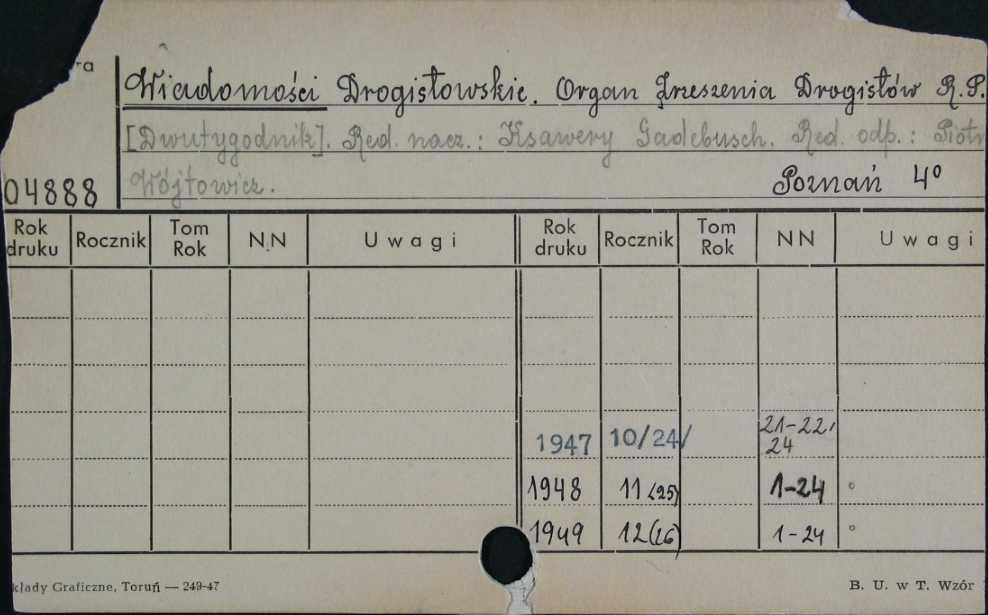 ra
Wiadomości Drogistowskie. Organ Zrzeszenia Drogistów R.P.
[Dwutygodnik]. Red. nacz.: Ksawery Gadebusch. Red. odp.: Piotr
04888 Wójtowicz. Poznań 4°
Rok druku Rocznik Tom Rok NN Uwagi Rok druku Rocznik Tom Rok NN Uwagi
1947 10/24/ 21-22, 24
1948 11 (25) 1-24 °
1949 12 (26) 1-24 °
kłady Graficzne, Toruń — 249-47 B. U. w T. Wzór